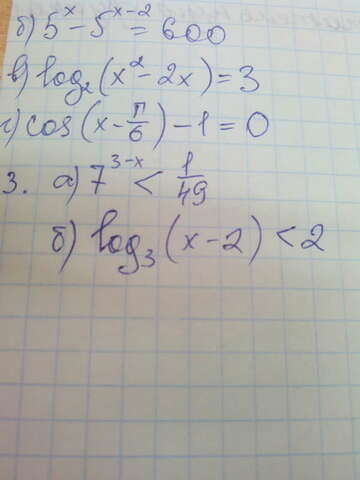 б) 5^x - 5^(x-2) = 600
в) log₂(x² - 2x) = 3
г) cos(x - π/6) - 1 = 0
3. а) 7^(3-x) < 1/49
б) log₃(x - 2) < 2